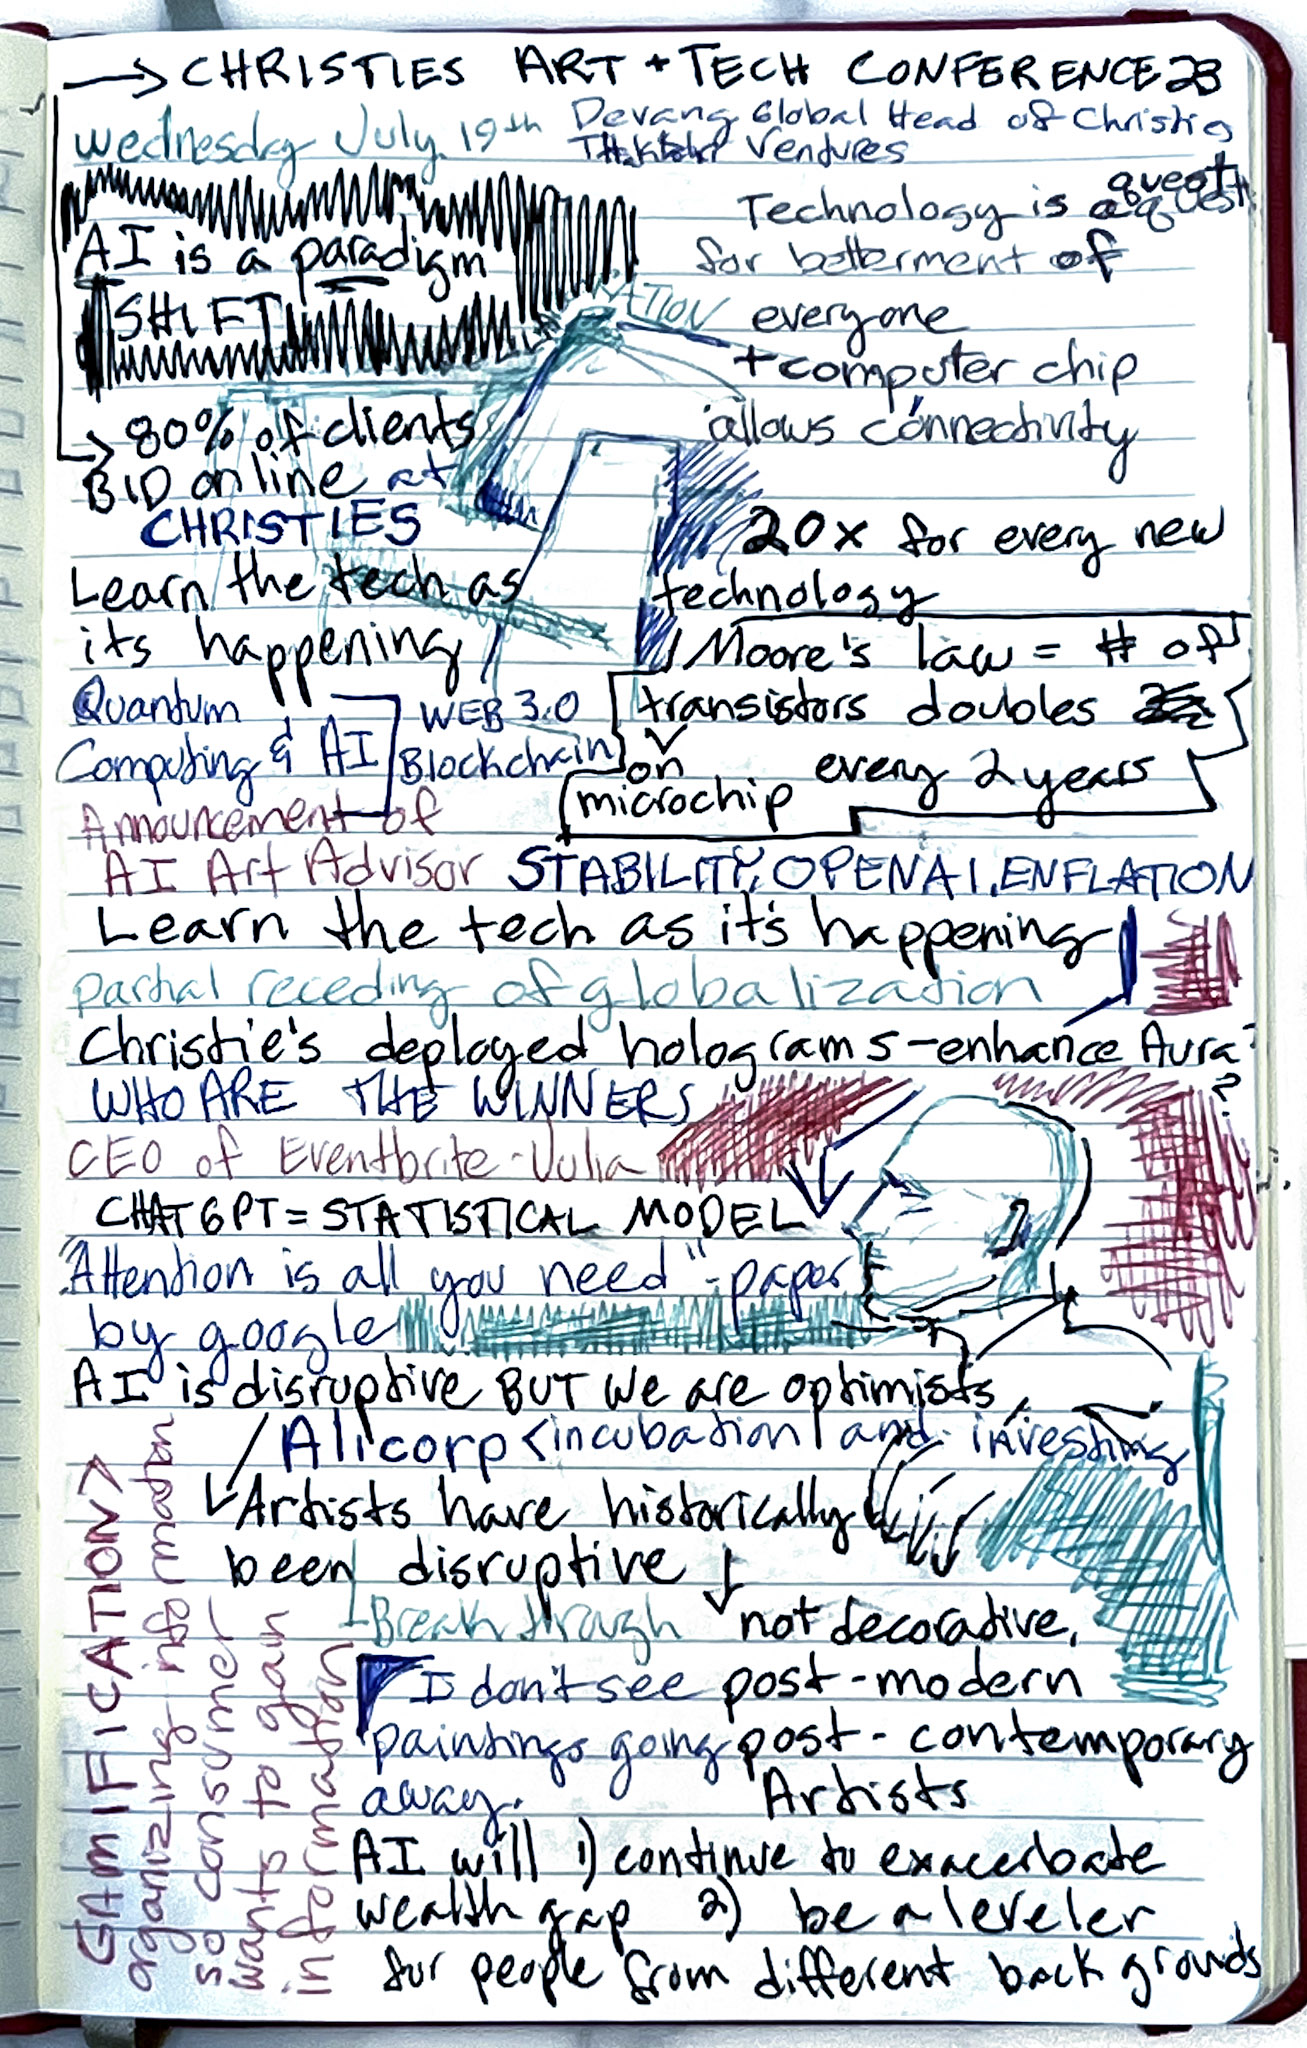 → CHRISTIES ART + TECH CONFERENCE 23
Wednesday July 19th
Devang Global Head of Christies
Ventures
AI is a paradigm
SHIFT
→ 80% of clients
BID online at
CHRISTIES
Learn the tech as
its happening
Technology is a quest
for betterment of
everyone
+ computer chip
allows connectivity
20x for every new
technology
Moore's law = # of
transistors doubles
on
microchip every 2 years
Quantum
Computing & AI
WEB 3.0
Blockchain
Announcement of
AI Art Advisor
STABILITY, OPENAI, ENFLATION
Learn the tech as it's happening
partial receding of globalization
Christie's deployed holograms - enhance Aura?
WHO ARE THE WINNERS
CEO of Eventbrite - Julia
CHATGPT = STATISTICAL MODEL
"Attention is all you need" - paper
by google
AI is disruptive BUT we are optimists
Alicorp < incubation and investing
Artists have historically
been disruptive
Breakthrough
not decorative,
post-modern
post-contemporary
Artists
I don't see
paintings going
away.
AI will 1) continue to exacerbate
wealth gap 2) be a leveler
for people from different backgrounds
GAMIFICATION >
organizing information
so consumer
wants to gain
information